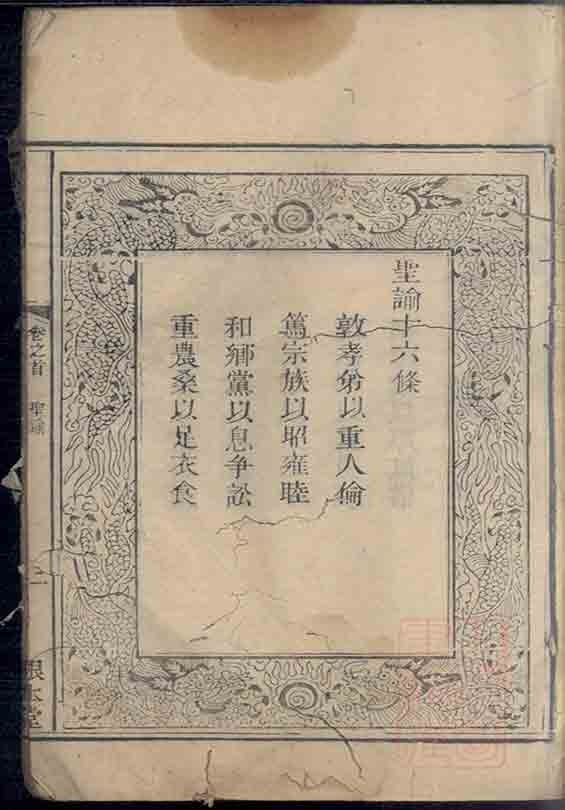 聖諭十六條
敦孝弟以重人倫
篤宗族以昭雍睦
和鄉黨以息争訟
重農桑以足衣食
卷之首 聖諭
二
根本堂